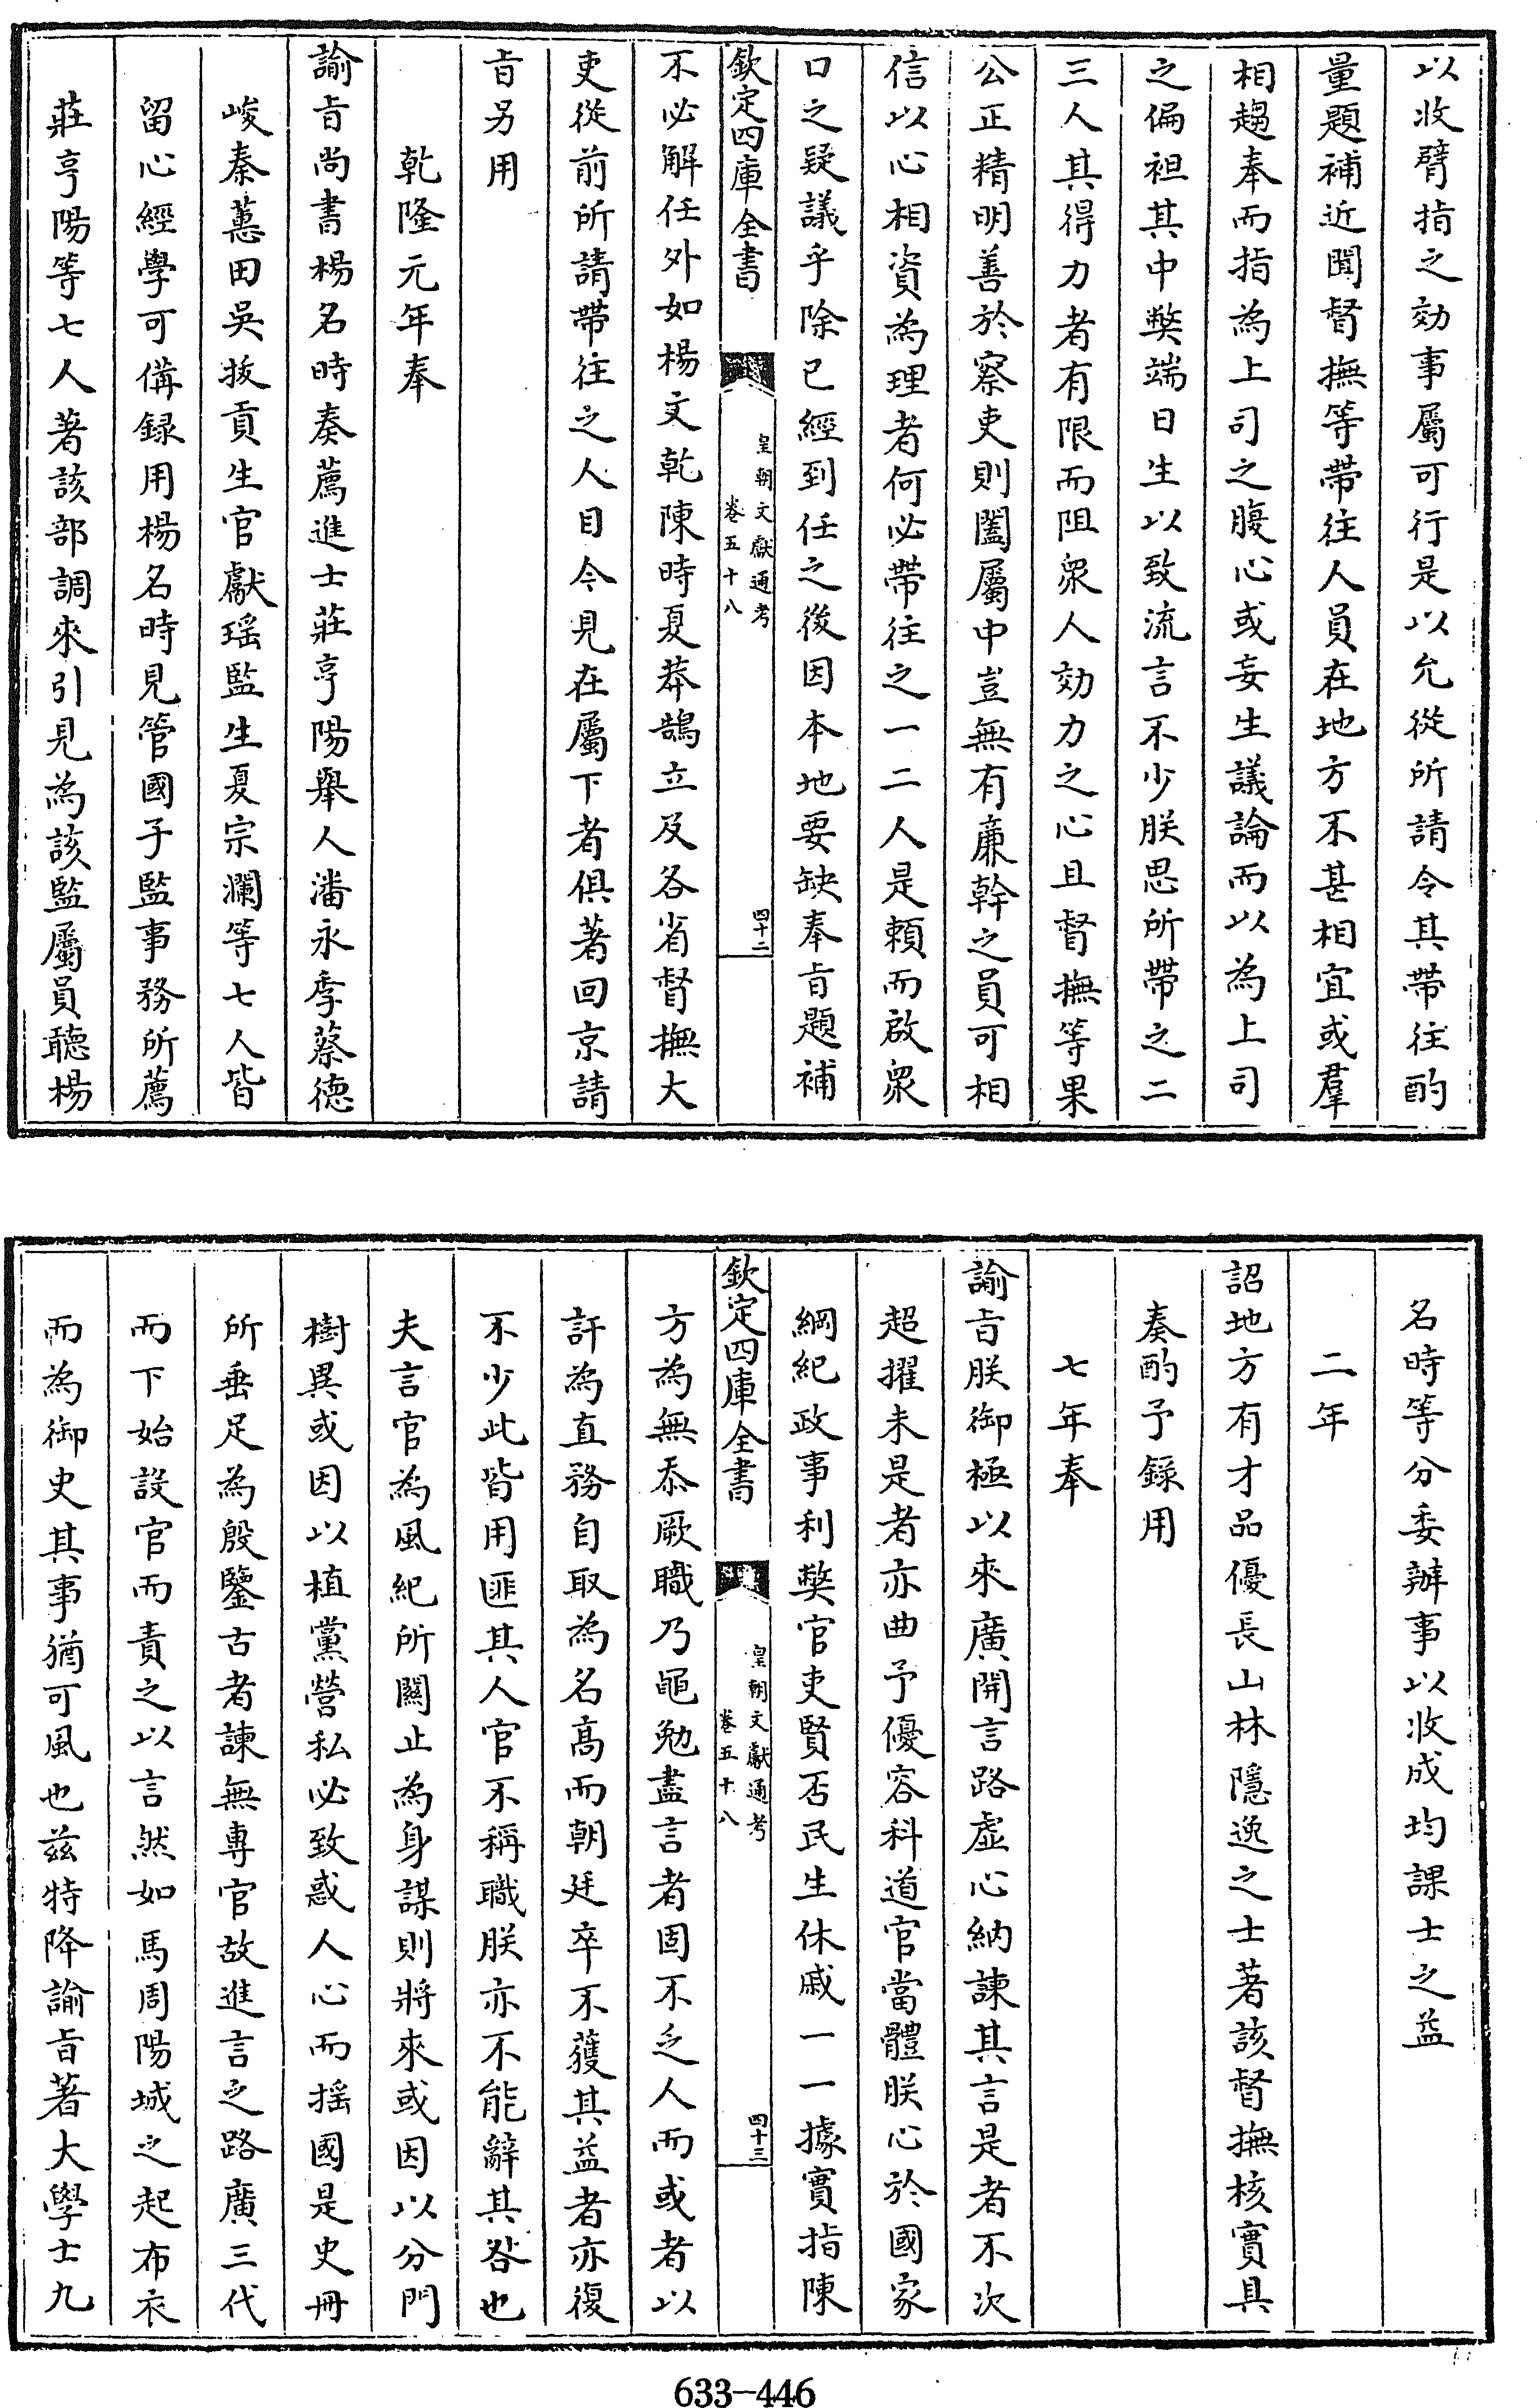 以收臂指之効事屬可行是以允從所請令其帶往酌
量題補近聞督撫等帶往人員在地方不甚相宜或羣
相趨奉而指為上司之腹心或妄生議論而以為上司
之偏袒其中獘端日生以致流言不少朕思所帶之二
三人其得力者有限而阻衆人効力之心且督撫等果
公正精明善於察吏則闔屬中豈無有廉幹之員可相
信以心相資為理者何必帶往之一二人是賴而啟衆
口之疑議乎除已經到任之後因本地要缺奉旨題補
欽定四庫全書
皇朝文獻通考
卷五十八
四十二
不必解任外如楊文乾陳時夏莽鵠立及各省督撫大
吏從前所請帶往之人目今見在屬下者俱著回京請
旨另用
乾隆元年奉
諭旨尚書楊名時奏薦進士莊亨陽舉人潘永季蔡德
峻秦蕙田吳拔貢生官獻瑶監生夏宗瀾等七人皆
留心經學可備録用楊名時見管國子監事務所薦
莊亨陽等七人著該部調來引見為該監屬員聽楊
名時等分委辦事以收成均課士之益
二年
詔地方有才品優長山林隱逸之士著該督撫核實具
奏酌予録用
七年奉
諭旨朕御極以來廣開言路虛心納諫其言是者不次
超擢未是者亦曲予優容科道官當體朕心於國家
綱紀政事利獘官吏賢否民生休戚一一據實指陳
欽定四庫全書
皇朝文獻通考
卷五十八
四十三
方為無忝厥職乃黽勉盡言者固不乏人而或者以
訐為直務自取為名高而朝廷卒不獲其益者亦復
不少此皆用匪其人官不稱職朕亦不能辭其咎也
夫言官為風紀所關止為身謀則將來或因以分門
樹異或因以植黨營私必致惑人心而揺國是史冊
所垂足為殷鑒古者諫無專官故進言之路廣三代
而下始設官而責之以言然如馬周陽城之起布衣
而為御史其事猶可風也兹特降諭旨著大學士九
633-446